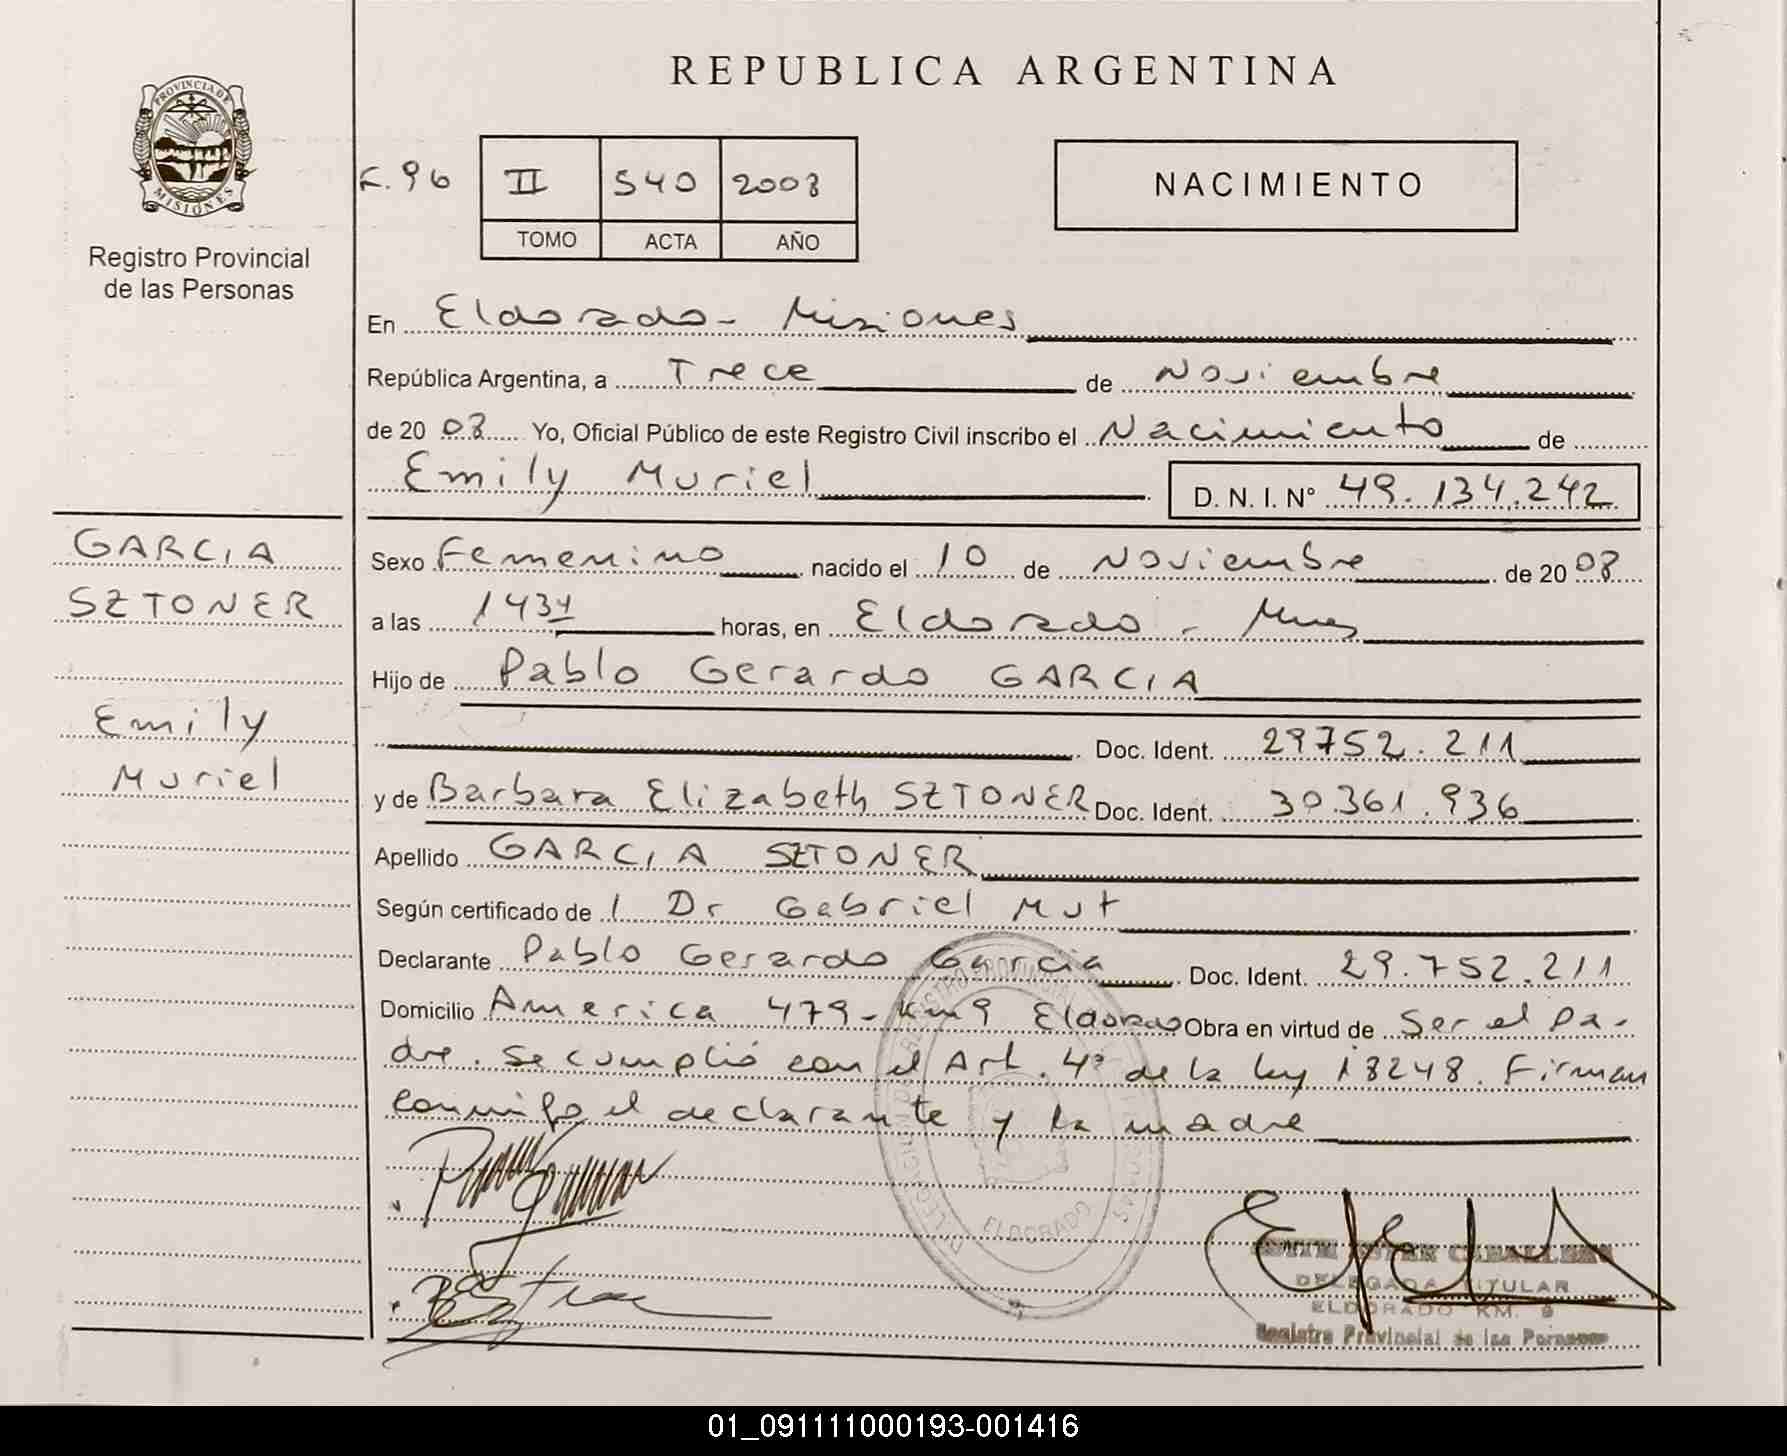 REPUBLICA ARGENTINA
PROVINCIA DE
MISIONES
Registro Provincial
de las Personas
F. 96
II 540 2008
TOMO ACTA AÑO
NACIMIENTO
En Eldorado - Misiones
República Argentina, a Trece de Noviembre
de 20 08 Yo, Oficial Público de este Registro Civil inscribo el Nacimiento de
Emily Muriel D. N. I. N° 49.134.242
GARCIA
SZTONER
Emily
Muriel
Sexo Femenino nacido el 10 de Noviembre de 20 08
a las 1434 horas, en Eldorado - Mnes
Hijo de Pablo Gerardo GARCIA
Doc. Ident. 29752.211
y de Barbara Elizabeth SZTONER Doc. Ident. 30.361.936
Apellido GARCIA SZTONER
Según certificado de l Dr Gabriel Mut
Declarante Pablo Gerardo Garcia Doc. Ident. 29.752.211
Domicilio America 479 - Km 9 Eldorado Obra en virtud de Ser el Pa-
dre. Se cumplió con el Art. 4º de la ley 18248. Firman
conmigo el declarante y la madre
ELDORADO
CABALLERO
DELEGADA TITULAR
ELDORADO KM. 9
Registro Provincial de las Personas
01_091111000193-001416